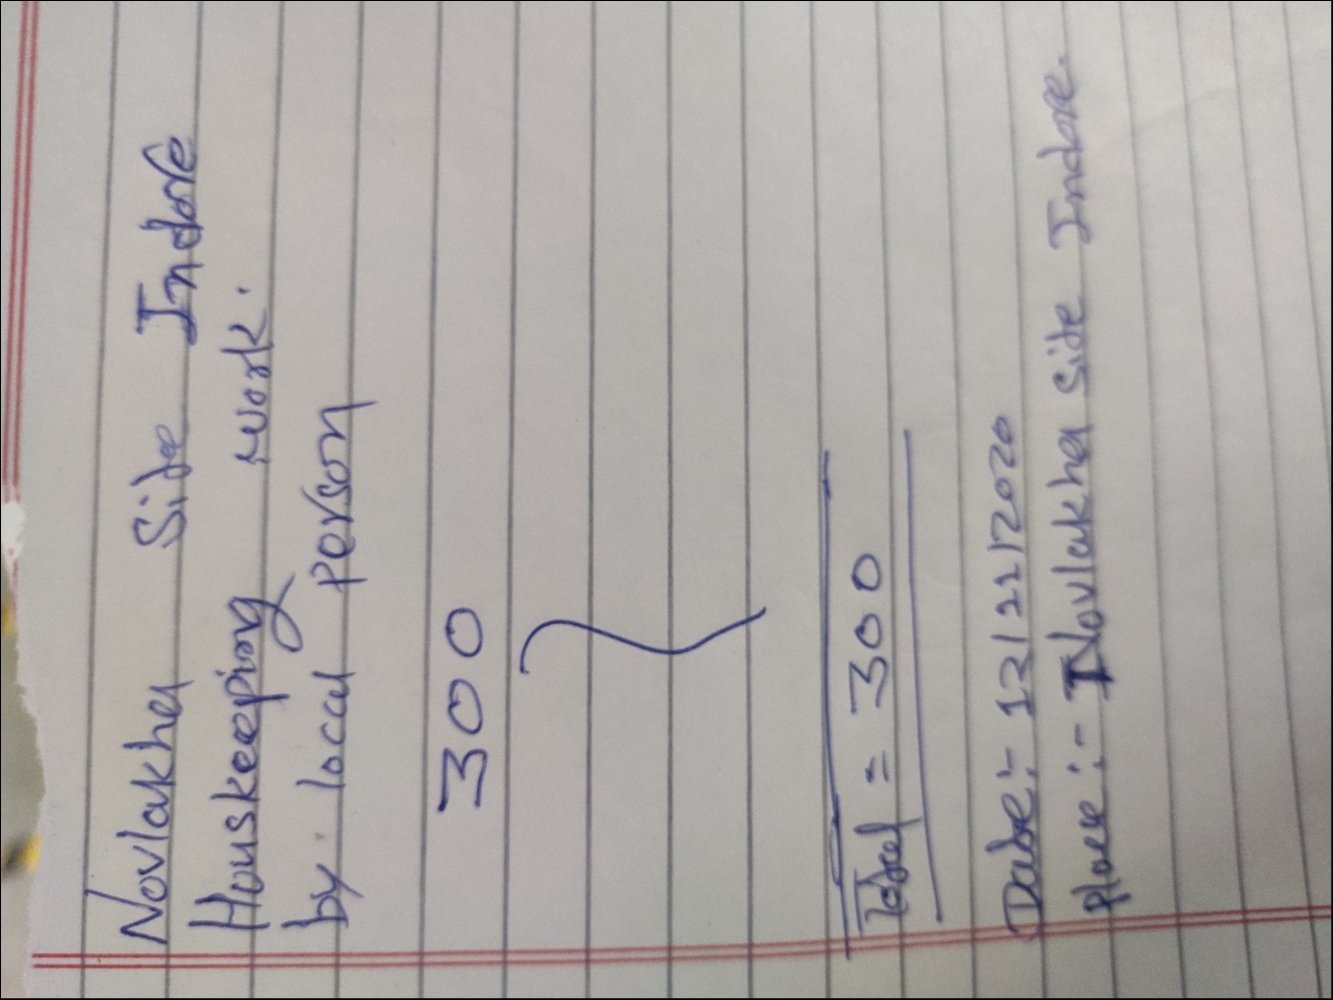 Novlakha Side Indore
Houskeeping work.
by local person
300
Total = 300
Date:- 12/12/2020
place:- Novlakha Side Indore.